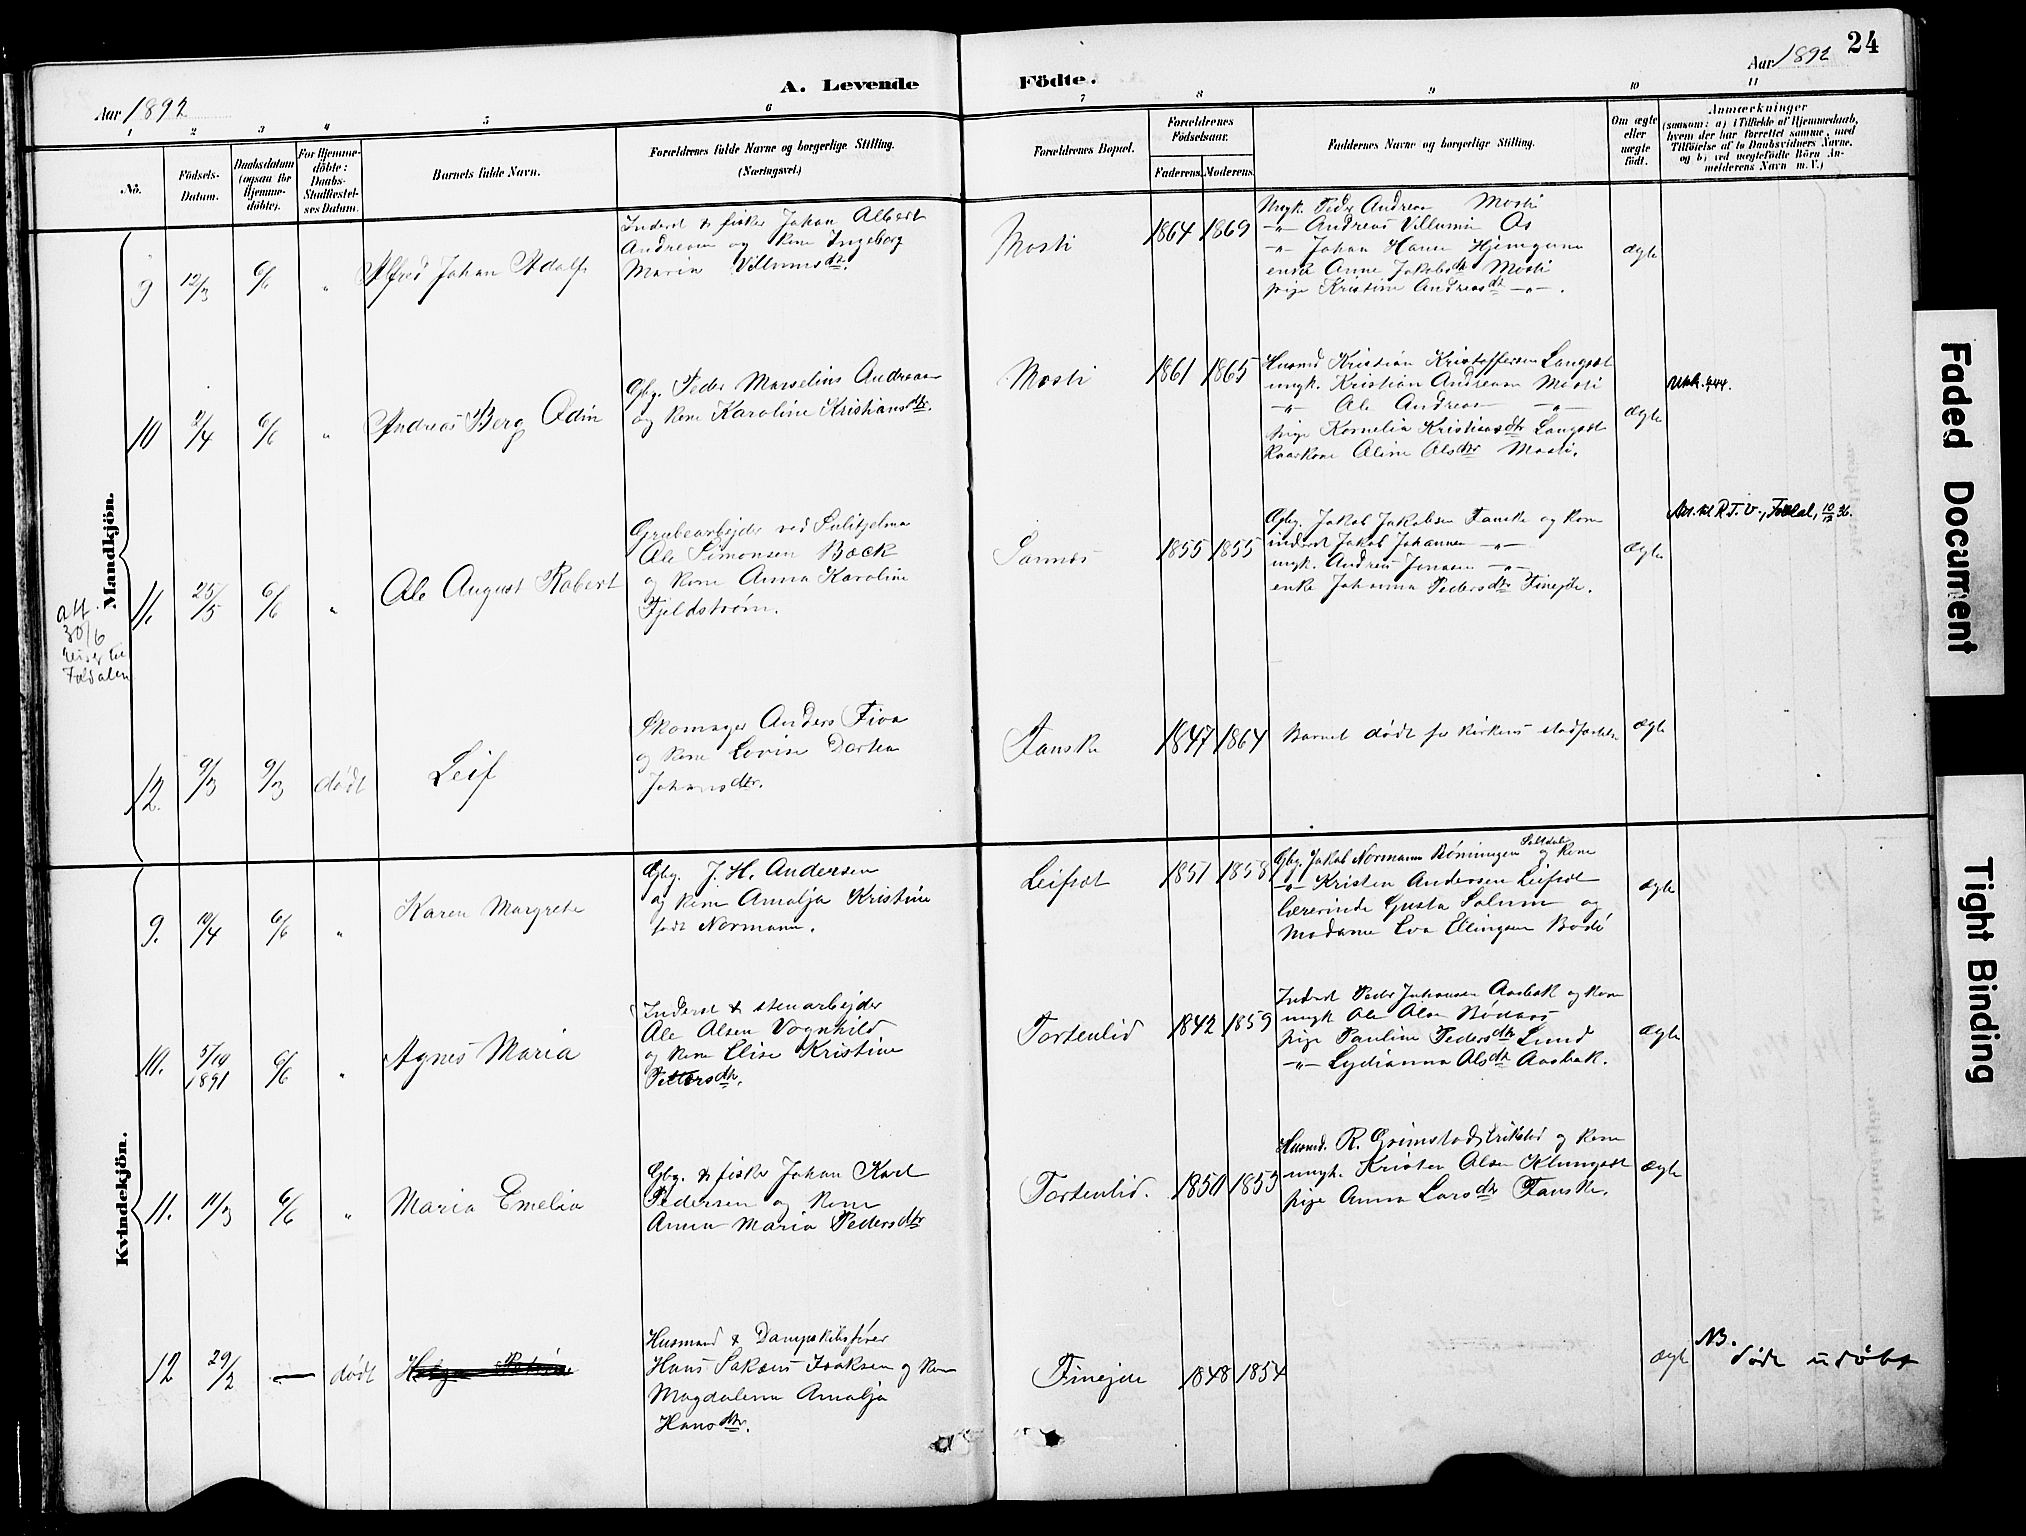 24
Aar 1892
A. Levende Födte.
Aar 1892
1 2 3 4 5 6 7 8 9 10 11
No.
Födsels-Datum.
Daabsdatum (ogsaa for Hjemme-döbte).
For Hjemme-döbte: Daabs-Stadfæstel-ses Datum.
Barnets fulde Navn.
Forældrenes fulde Navne og borgerlige Stilling.
(Næringsvei.)
Forældrenes Bopæl.
Forældrenes Födselsaar.
Faderens. Moderens.
Faddernes Navne og borgerlige Stilling.
Om ægte eller uægte födt.
Anmærkninger
(saasom: a) i Tilfælde af Hjemmedaab,
hvem der har forrettet samme, med
Tilföielse af to Daabsvidners Navne,
og b) ved uægtefödte Börn An-
melderens Navn m. V.)
Mandkjön.
9 12/3 6/6 " Alfred Johan Adolf
Inderst & fisker Johan Albert
Andreasen og Kone Ingeborg
Maria Villumsdtr.
Mosti 1864 1869
Ungk. Peder Andreasen Mosti
-"- Andreas Villumsen Os
-"- Johan Hansen
enke Anne Jakobsdtr Mosti
pige Kristine Andreasdtr -"-.
ægte
10 2/4 6/6 " Andreas Berg Odin
Gbg. Peder Marselius Andreasen
og Kone Karoline Kristiansdtr.
Mosti 1861 1865
Husmd Kristian Kristoffersen Langset
ungk. Kristian Andreasen Mosti
-"- Ole Andreasen -"-
pige Kornelia Kristiansdtr Langset
Kaarkone Aline Olsdtr Mosti.
ægte
11. 25/5 6/6 " Ole August Robert
Grubearbejder ved Sulitjelma
Ole Simonsen Bock
og Kone Anna Karoline
Fjeldstrøm.
Sannes 1855 1855
Gbg. Jakob Jakobsen Fauske og Kone
inderst Jakob Johannesen -"-
ungk. Andreas Jensen -"-
enke Johanna Pedersdtr Finejde.
ægte
Att. til R.T.V., Folldal, 10/12 36.
att.
30/6
reiser til
Foldalen
12. 9/3 9/3 dödt Leif
Skomager Anders Fiva
og Kone Lovise Dortea
Johansdtr.
Fauske 1847 1864
Barnet dödt før Kirkens stadfæstelse
ægte
Kvindekjön.
9. 10/4 6/6 " Karen Margrete
Gbg. J. H. Andersen
og Kone Amalja Kristine
født Normann.
Leifset 1851 1858
Gbg. Jakob Normann Bömingen Saltdalen og Kone
-"- Kristen Andersen Leifset
Lærerinde Gusta Solum og
Madame Eva Ellingsen Bodö
ægte
10. 5/10 1891 6/6 " Agnes Maria
Inderst & stenarbejder
Ole Olsen Vognhild
og Kone Elise Kristine
Pettersdtr.
Tortenlid 1842 1859
Inderst Peder Johansen Aasbak og Kone
ungk Ole Olsen
pige Pauline Pedersdtr Lund
-"- Lydianna Olsdtr Aasbak.
ægte
11. 11/3 6/6 " Maria Emelia
Gbg. & fisker Johan Karl
Pedersen og Kone
Anna Maria Pedersdtr
Tortenlid. 1850 1853
Husmd. R. Grimstad, Erikstad og Kone
ungk. Kristen Olsen Klungset
pige Anna Larsdtr Fauske.
ægte
12 29/2 — dödt
Husmand & Dampskibsfører
Hans Sakæus Isaksen og Kone
Magdalena Amalja
Hansdtr.
Finejde 1848 1854
ægte
NB.
döde udöbt
Faded Document
Tight Binding